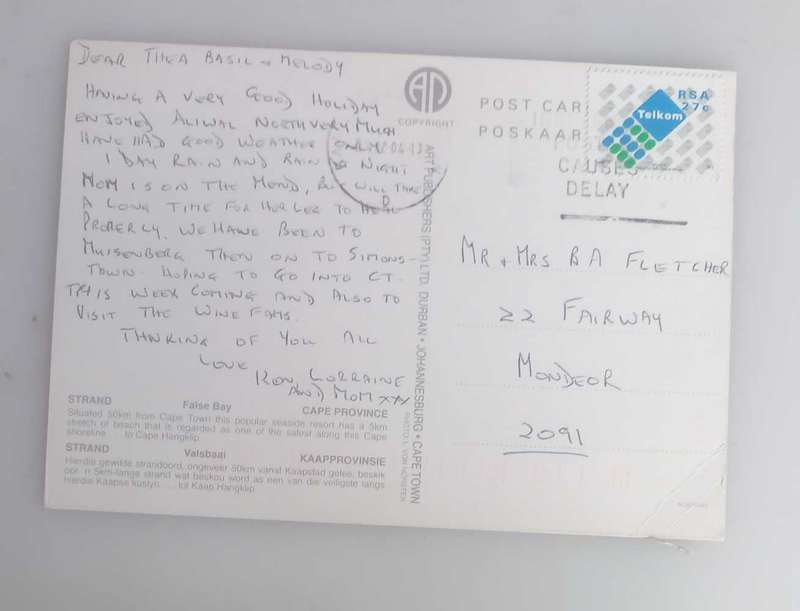 DEAR THEA BASIL + MELODY
HAVING A VERY GOOD HOLIDAY
ENJOYED ALIWAL NORTH VERY MUCH
HAVE HAD GOOD WEATHER ONLY
1 DAY RAIN AND RAIN @ NIGHT
MOM IS ON THE MEND, BUT WILL TAKE
A LONG TIME FOR HER LEG TO HEAL
PROPERLY. WE HAVE BEEN TO
MUISENBERG THEN ON TO SIMONS-
TOWN. HOPING TO GO INTO CT.
THIS WEEK COMING AND ALSO TO
VISIT THE WINE FAMS.
THINKING OF YOU ALL
LOVE
RON LORRAINE
AND MOM XXX
STRAND False Bay CAPE PROVINCE
Situated 50km from Cape Town this popular seaside resort has a 5km
stretch of beach that is regarded as one of the safest along this Cape
shoreline . . . to Cape Hangklip.
STRAND Valsbaai KAAPPROVINSIE
Hierdie gewilde strandoord, ongeveer 50km vanaf Kaapstad geleë, beskik
oor 'n 5km-lange strand wat beskou word as een van die veiligste langs
hierdie Kaapse kuslyn. . . . tot Kaap Hangklip.
COPYRIGHT
ART PUBLISHERS (PTY) LTD. DURBAN • JOHANNESBURG • CAPE TOWN
POST CAR
POSKAAR
RSA
27c
Telkom
CAUSES
DELAY
MR + MRS B A FLETCHER
22 FAIRWAY
MONDEOR
2091